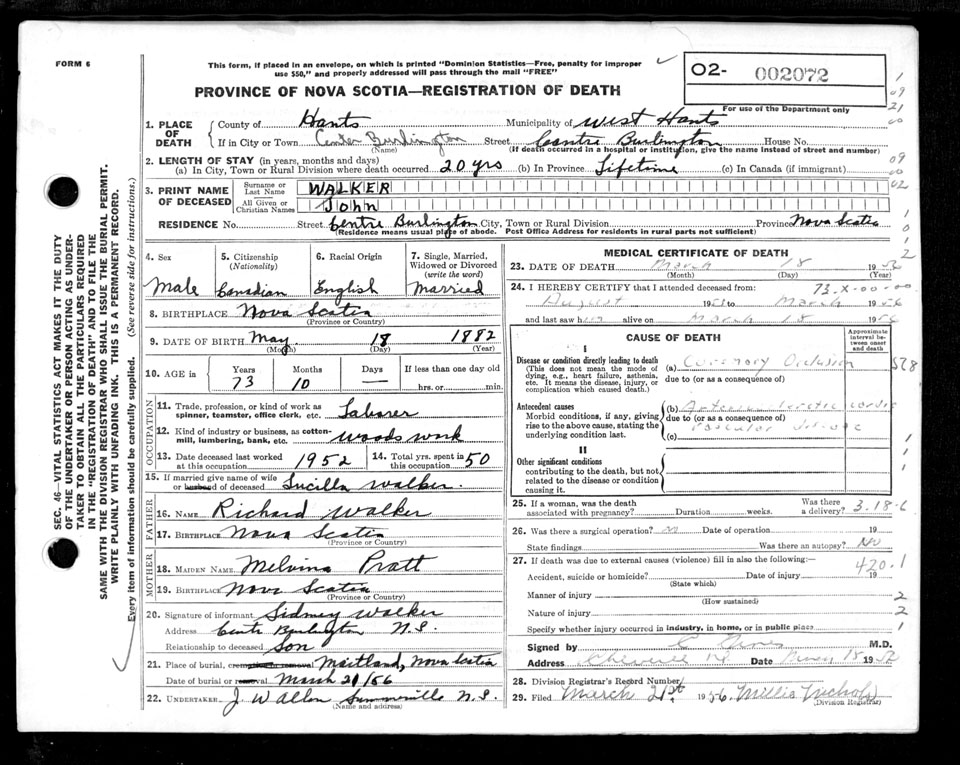 FORM 6
This form, if placed in an envelope, on which is printed "Dominion Statistics—Free, penalty for improper
use $50," and properly addressed will pass through the mail "FREE"
O2- 002072
For use of the Department only
PROVINCE OF NOVA SCOTIA—REGISTRATION OF DEATH
1. PLACE OF DEATH
County of Hants Municipality of West Hants
If in City or Town Center Burlington Street Centre Burlington House No.
(Name) (If death occurred in a hospital or institution, give the name instead of street and number)
2. LENGTH OF STAY (in years, months and days)
(a) In City, Town or Rural Division where death occurred 20 yrs (b) In Province Lifetime (c) In Canada (if immigrant)
3. PRINT NAME OF DECEASED
Surname or Last Name WALKER
All Given or Christian Names John
RESIDENCE No. Street Centre Burlington City, Town or Rural Division Province Nova Scotia
(Residence means usual place of abode. Post Office Address for residents in rural parts not sufficient)
4. Sex
Male
5. Citizenship
(Nationality)
Canadian
6. Racial Origin
English
7. Single, Married,
Widowed or Divorced
(write the word)
Married
8. BIRTHPLACE Nova Scotia
(Province or Country)
9. DATE OF BIRTH May 18 1882
(Month) (Day) (Year)
10. AGE in
Years Months Days If less than one day old
73 10 — hrs. or min.
OCCUPATION
11. Trade, profession, or kind of work as
spinner, teamster, office clerk, etc. Laborer
12. Kind of industry or business, as cotton-
mill, lumbering, bank, etc. woods work
13. Date deceased last worked
at this occupation 1952
14. Total yrs. spent in
this occupation 50
15. If married give name of wife
or husband of deceased Lucilla Walker.
FATHER
16. NAME Richard Walker
17. BIRTHPLACE Nova Scotia
(Province or Country)
MOTHER
18. MAIDEN NAME Melvina Pratt
19. BIRTHPLACE Nova Scotia
(Province or Country)
20. Signature of informant Sidney Walker
Address Centr Burlington N.S.
Relationship to deceased Son
21. Place of burial, cremation or removal Maitland, Nova Scotia
Date of burial or removal March 21/56
22. UNDERTAKER J. W Allen Summerville N.S.
(Name and address)
MEDICAL CERTIFICATE OF DEATH
23. DATE OF DEATH March 18 1956
(Month) (Day) (Year)
24. I HEREBY CERTIFY that I attended deceased from: 73.X-00-00
August to March 1956
and last saw him alive on March 18 1956
CAUSE OF DEATH
Approximate interval between onset and death
I
Disease or condition directly leading to death
(This does not mean the mode of
dying, e.g., heart failure, asthenia,
etc. It means the disease, injury, or
complication which caused death.)
(a) Coronary Occlusion
due to (or as a consequence of)
Antecedent causes
Morbid conditions, if any, giving
rise to the above cause, stating the
underlying condition last.
(b) Arteriosclerotic cardio
due to (or as a consequence of)
vascular disease
(c)
II
Other significant conditions
contributing to the death, but not
related to the disease or condition
causing it.
25. If a woman, was the death
associated with pregnancy? Duration weeks. Was there
a delivery? 3.18-6
26. Was there a surgical operation? no Date of operation 19
State findings Was there an autopsy? No
27. If death was due to external causes (violence) fill in also the following:—
420.1
Accident, suicide or homicide? Date of injury 19
(State which)
Manner of injury 2
(How sustained)
Nature of injury 2
Specify whether injury occurred in industry, in home, or in public place 1
Signed by M.D.
Address Date 18 19
28. Division Registrar's Record Number
29. Filed March 21st 1956. Millis Nichols
(Division Registrar)
SEC. 46—VITAL STATISTICS ACT MAKES IT THE DUTY
OF THE UNDERTAKER OR PERSON ACTING AS UNDER-
TAKER TO OBTAIN ALL THE PARTICULARS REQUIRED
IN THE "REGISTRATION OF DEATH" AND TO FILE THE
SAME WITH THE DIVISION REGISTRAR WHO SHALL ISSUE THE BURIAL PERMIT.
WRITE PLAINLY WITH UNFADING INK. THIS IS A PERMANENT RECORD.
Every item of information should be carefully supplied. (See reverse side for instructions.)